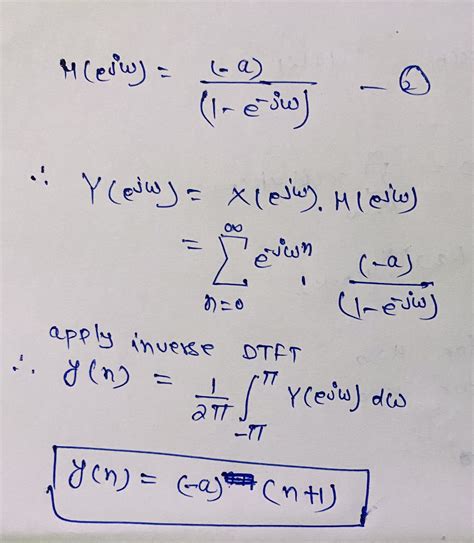 H(e^jω) = (-a) / (1 - e^-jω) — ②
∴ Y(e^jω) = X(e^jω). H(e^jω)
= ∞ Σ n=0 e^-jωn . (-a) / (1 - e^-jω)
apply inverse DTFT
∴ y(n) = 1/2π ∫ -π π Y(e^jω) dω
y(n) = (-a) (n+1)